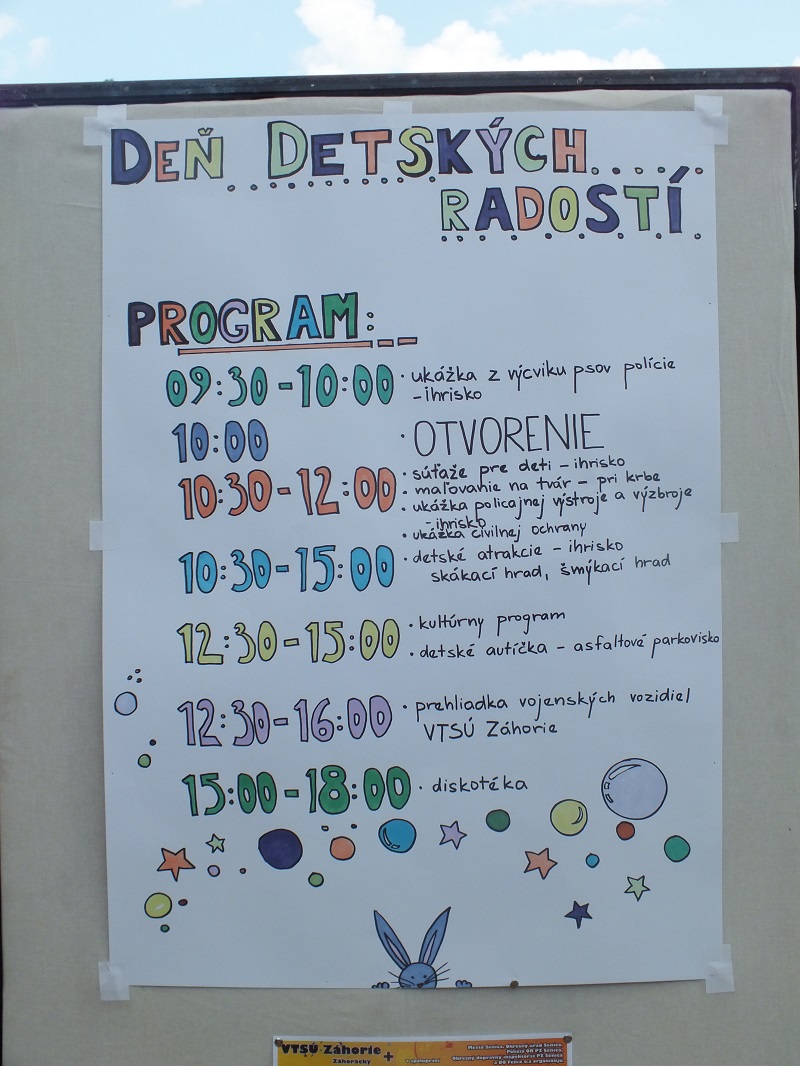 DEŇ DETSKÝCH
RADOSTÍ
PROGRAM:
09:30-10:00 · ukážka z výcviku psov polície
- ihrisko
10:00 · OTVORENIE
10:30-12:00 · súťaže pre deti - ihrisko
· maľovanie na tvár - pri krbe
· ukážka policajnej výstroje a výzbroje
- ihrisko
· ukážka civilnej ochrany
10:30-15:00 · detské atrakcie - ihrisko
skákací hrad, šmýkací hrad
12:30-15:00 · kultúrny program
· detské autíčka - asfaltové parkovisko
12:30-16:00 · prehliadka vojenských vozidiel
VTSÚ Záhorie
15:00-18:00 · diskotéka
VTSÚ Záhorie +
Záhorácky
v spolupráci
Mesto Senica, Okresný úrad Senica,
Polícia OR PZ Senica,
Okresný dopravný inšpektorát PZ Senica